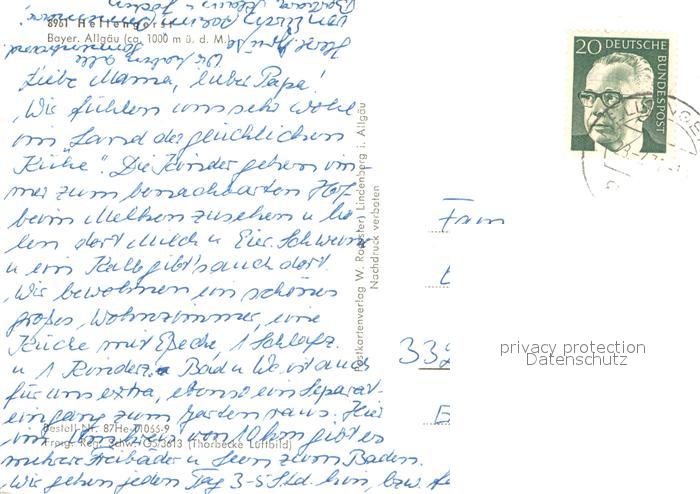 8961 Hellengerst
Bayer. Allgäu (ca. 1000 m ü. d. M.)
Liebe Mama, lieber Papa!
Wir fühlen uns sehr wohl
im "Land der glücklichen
Kühe". Die Kinder gehen im-
mer zum benachbarten Hof
beim Melken zusehen u. ho-
len dort Milch u. Eier. Schweine
u. ein Kalb gibt's auch dort.
Wir bewohnen ein schönes
großes Wohnzimmer, eine
Küche mit 1 Schlafz.
u. 1 Kinderz. Bad u. Wc ist auch
für uns extra, ebenso ein Separat-
eingang zum Garten raus. Hier
im Umkreis von 10 km gibt es
mehrere Freibäder u. Seen zum Baden.
Wir gehen jeden Tag 3-5 Std. bzw.
Bestell-Nr. 87He-11065-9
Freig. Reg. Schw. G5/3613 (Thorbecke Luftbild)
Postkartenverlag W. Lindenberg i. Allgäu
Nachdruck verboten
20 DEUTSCHE
BUNDESPOST
Fam
332
privacy protection
Datenschutz